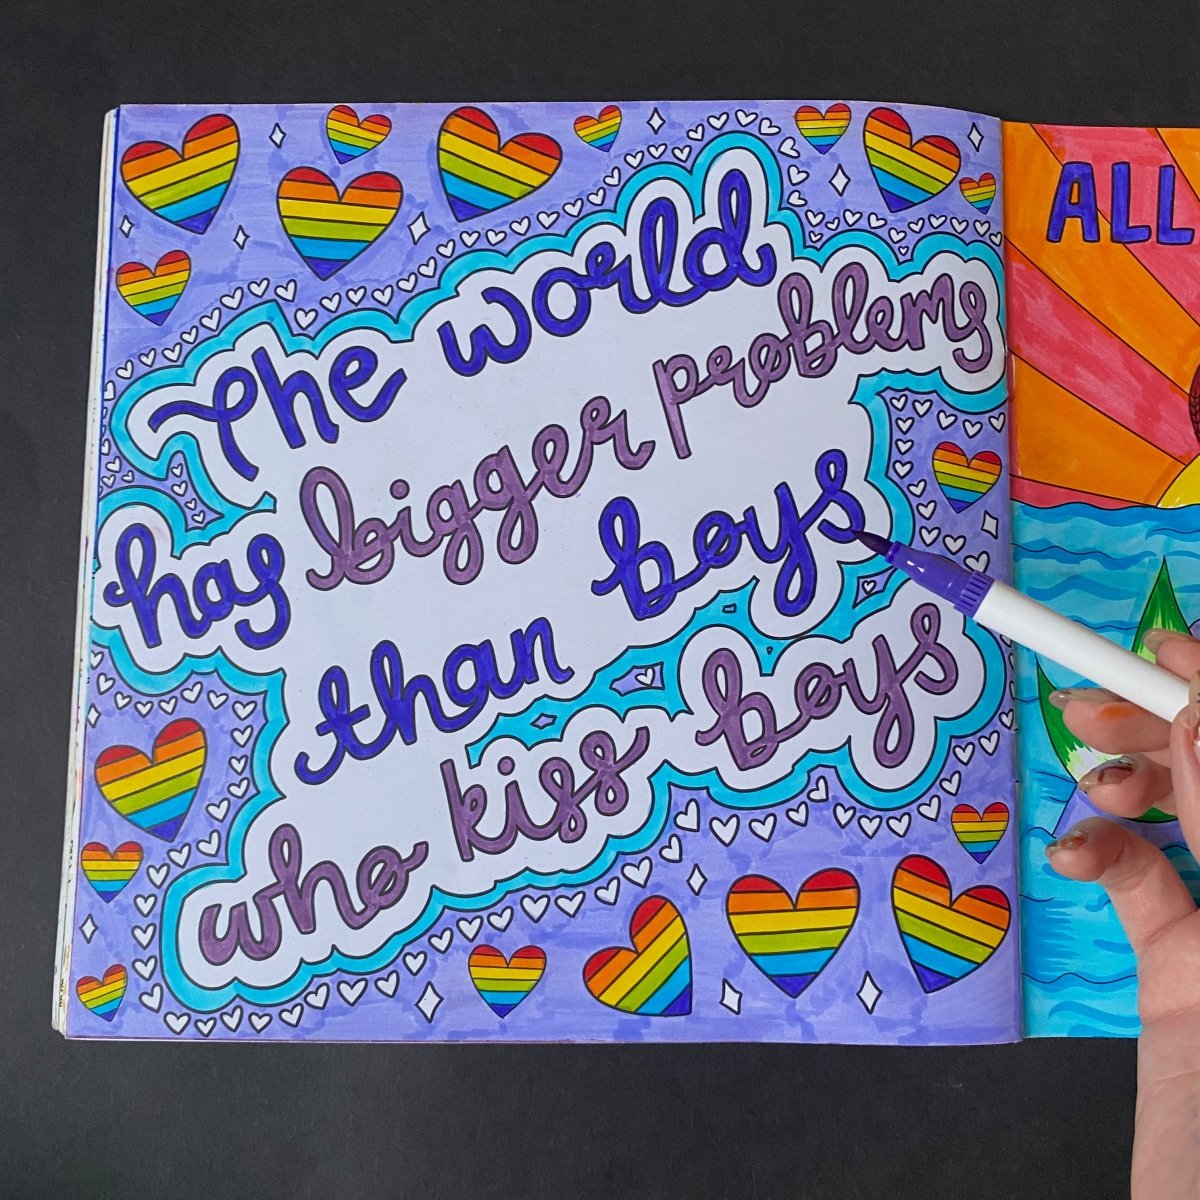 The world
has bigger problems
than boys
who kiss boys
ALL